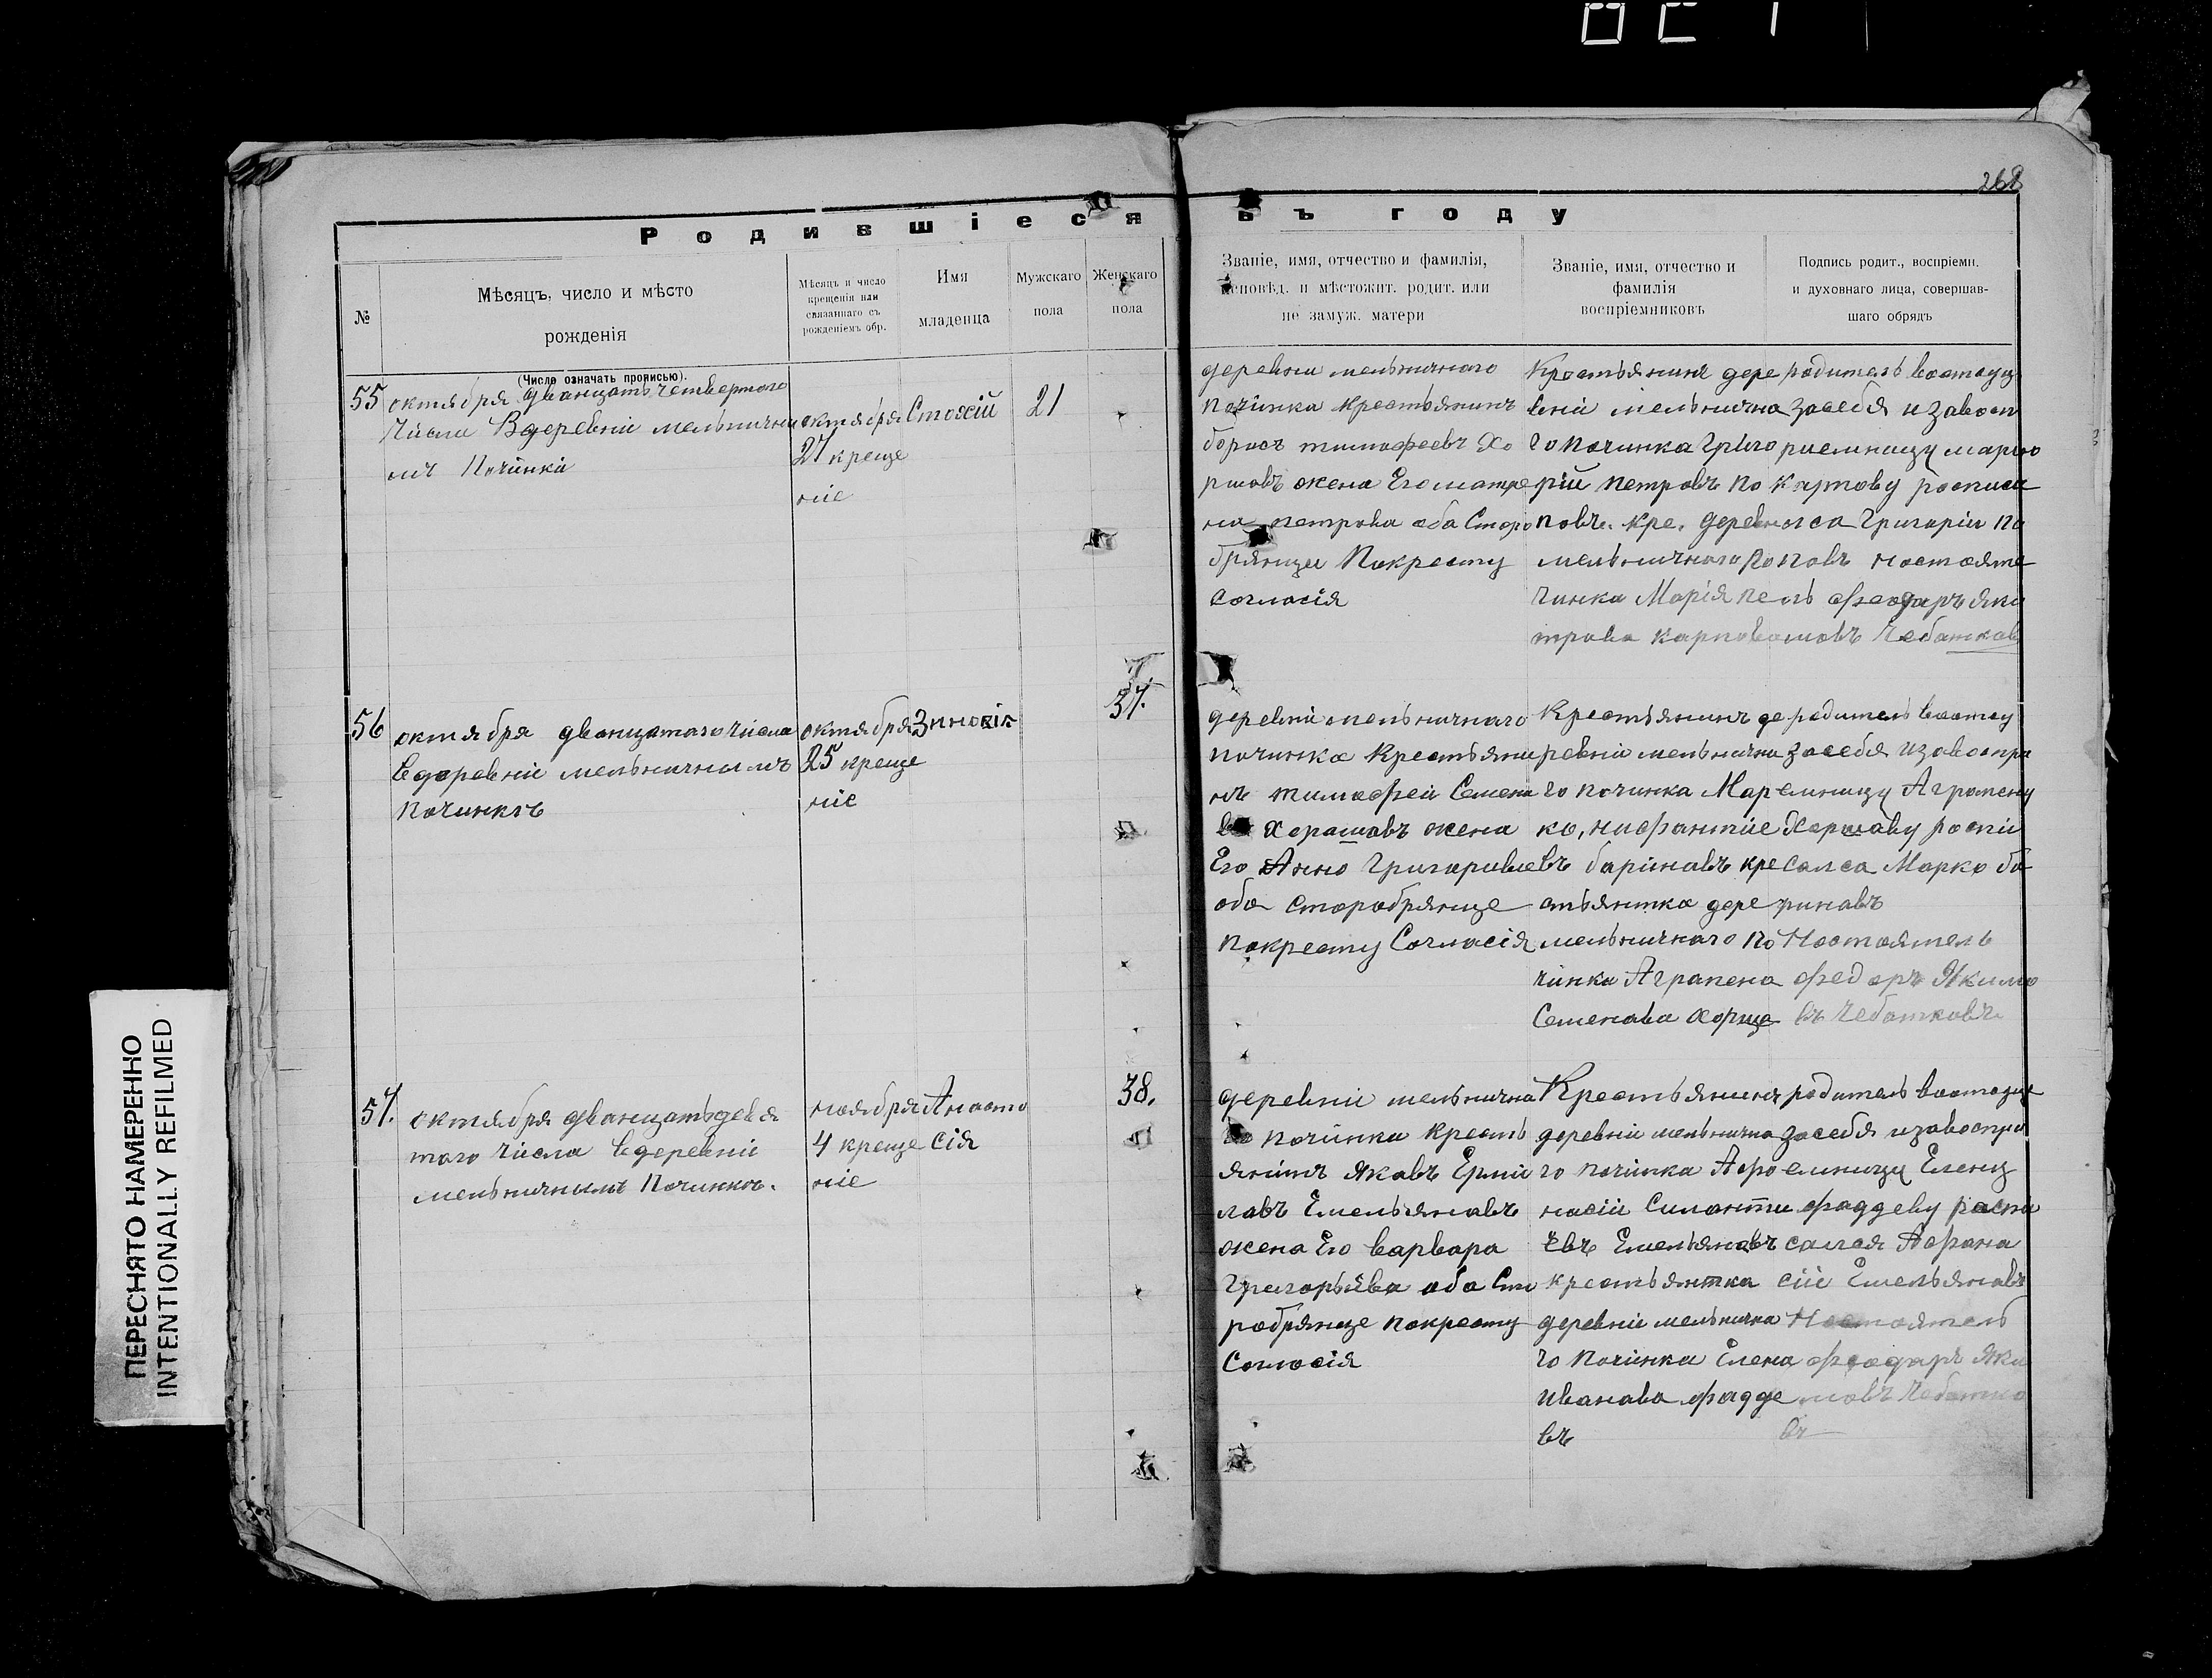 268
Родившіеся въ году
№
Мѣсяцъ, число и мѣсто
рожденія
(Число означать прописью).
Мѣсяцъ и число
крещенія или
связаннаго съ
рожденіемъ обр.
Имя
младенца
Мужскаго
пола
Женскаго
пола
Званіе, имя, отчество и фамилія,
исповѣд. и мѣстожит. родит. или
не замуж. матери
Званіе, имя, отчество и
фамилія
воспріемниковъ
Подпись родит., воспріемн.
и духовнаго лица, совершав-
шаго обрядъ
55
октября двонцать четвертого
Числа Вдеревніи мельнични
мъ Починки
октября
27 креще
ніе
Стахій
21
деревни мельничнаго
починка крестьянинъ
борисъ тимофеевъ Хо
ршавъ жена Его матре
на петрова оба Старо
брянцы Покресту
Согласія
Крестьянинъ дере
вніи мельнична
го починка Григо
рій петровъ По
повъ. кре. деревн
мельничнаго По
чинка Марія пе
трова карпова
родитель вместо
засебя и завосп
риемницу марью
карпову росписа
лса Григорій по
повъ настояте
ль феодаръ яки
мовъ Чебатков
56
октября двонцатого числа
вдеревніе мельничнымъ
починкъ
октября
25 креще
ніе
Зиновія
37.
деревни мельничнаго
починка Крестьяни
нъ тимофеи Семено
въ Хорашавъ жена
Его Анна Григаривев
оба старобрянце
покресту Согласія
Крестьянинъ де
ревніи мельнична
го починка Мар
ко, нифантие
въ бариновъ кре
стьянтка дере
мельничнаго по
чинка Аграпена
Семенава хорша
родитель вместо
засебя изавоспри
емницу Аграпену
Хоршаву роспи
салса Марко ба
ринавъ
Настоятель
федоръ Якимо
въ Чебатковъ
57.
октября двонцать девя
таго Числа вдеревніи
мельничнымъ Починкъ.
ноября
4 креще
ніе
Анаста
сія
38.
деревніи мельнична
го починки Кресть
янинъ Яковъ Ерми
лавъ Емельянавъ
жена Его варвара
Григорьева оба Ста
робрянце покресту
Согласія
Крестьянинъ
деревніи мельнична
го починка Афо
насіи Силантии
евъ Емельянавъ
крестьянтка
деревніи мельнична
го Починка Елена
иванава фадде
въ
родитель вместо
засебя изавоспри
емницу Елену
фаддеву распи
салса Афана
сіи Емельянавъ
Настоятель
феодаръ Яки
мовъ Чебатко
въ
ПЕРЕСНЯТО НАМЕРЕННО
INTENTIONALLY REFILMED